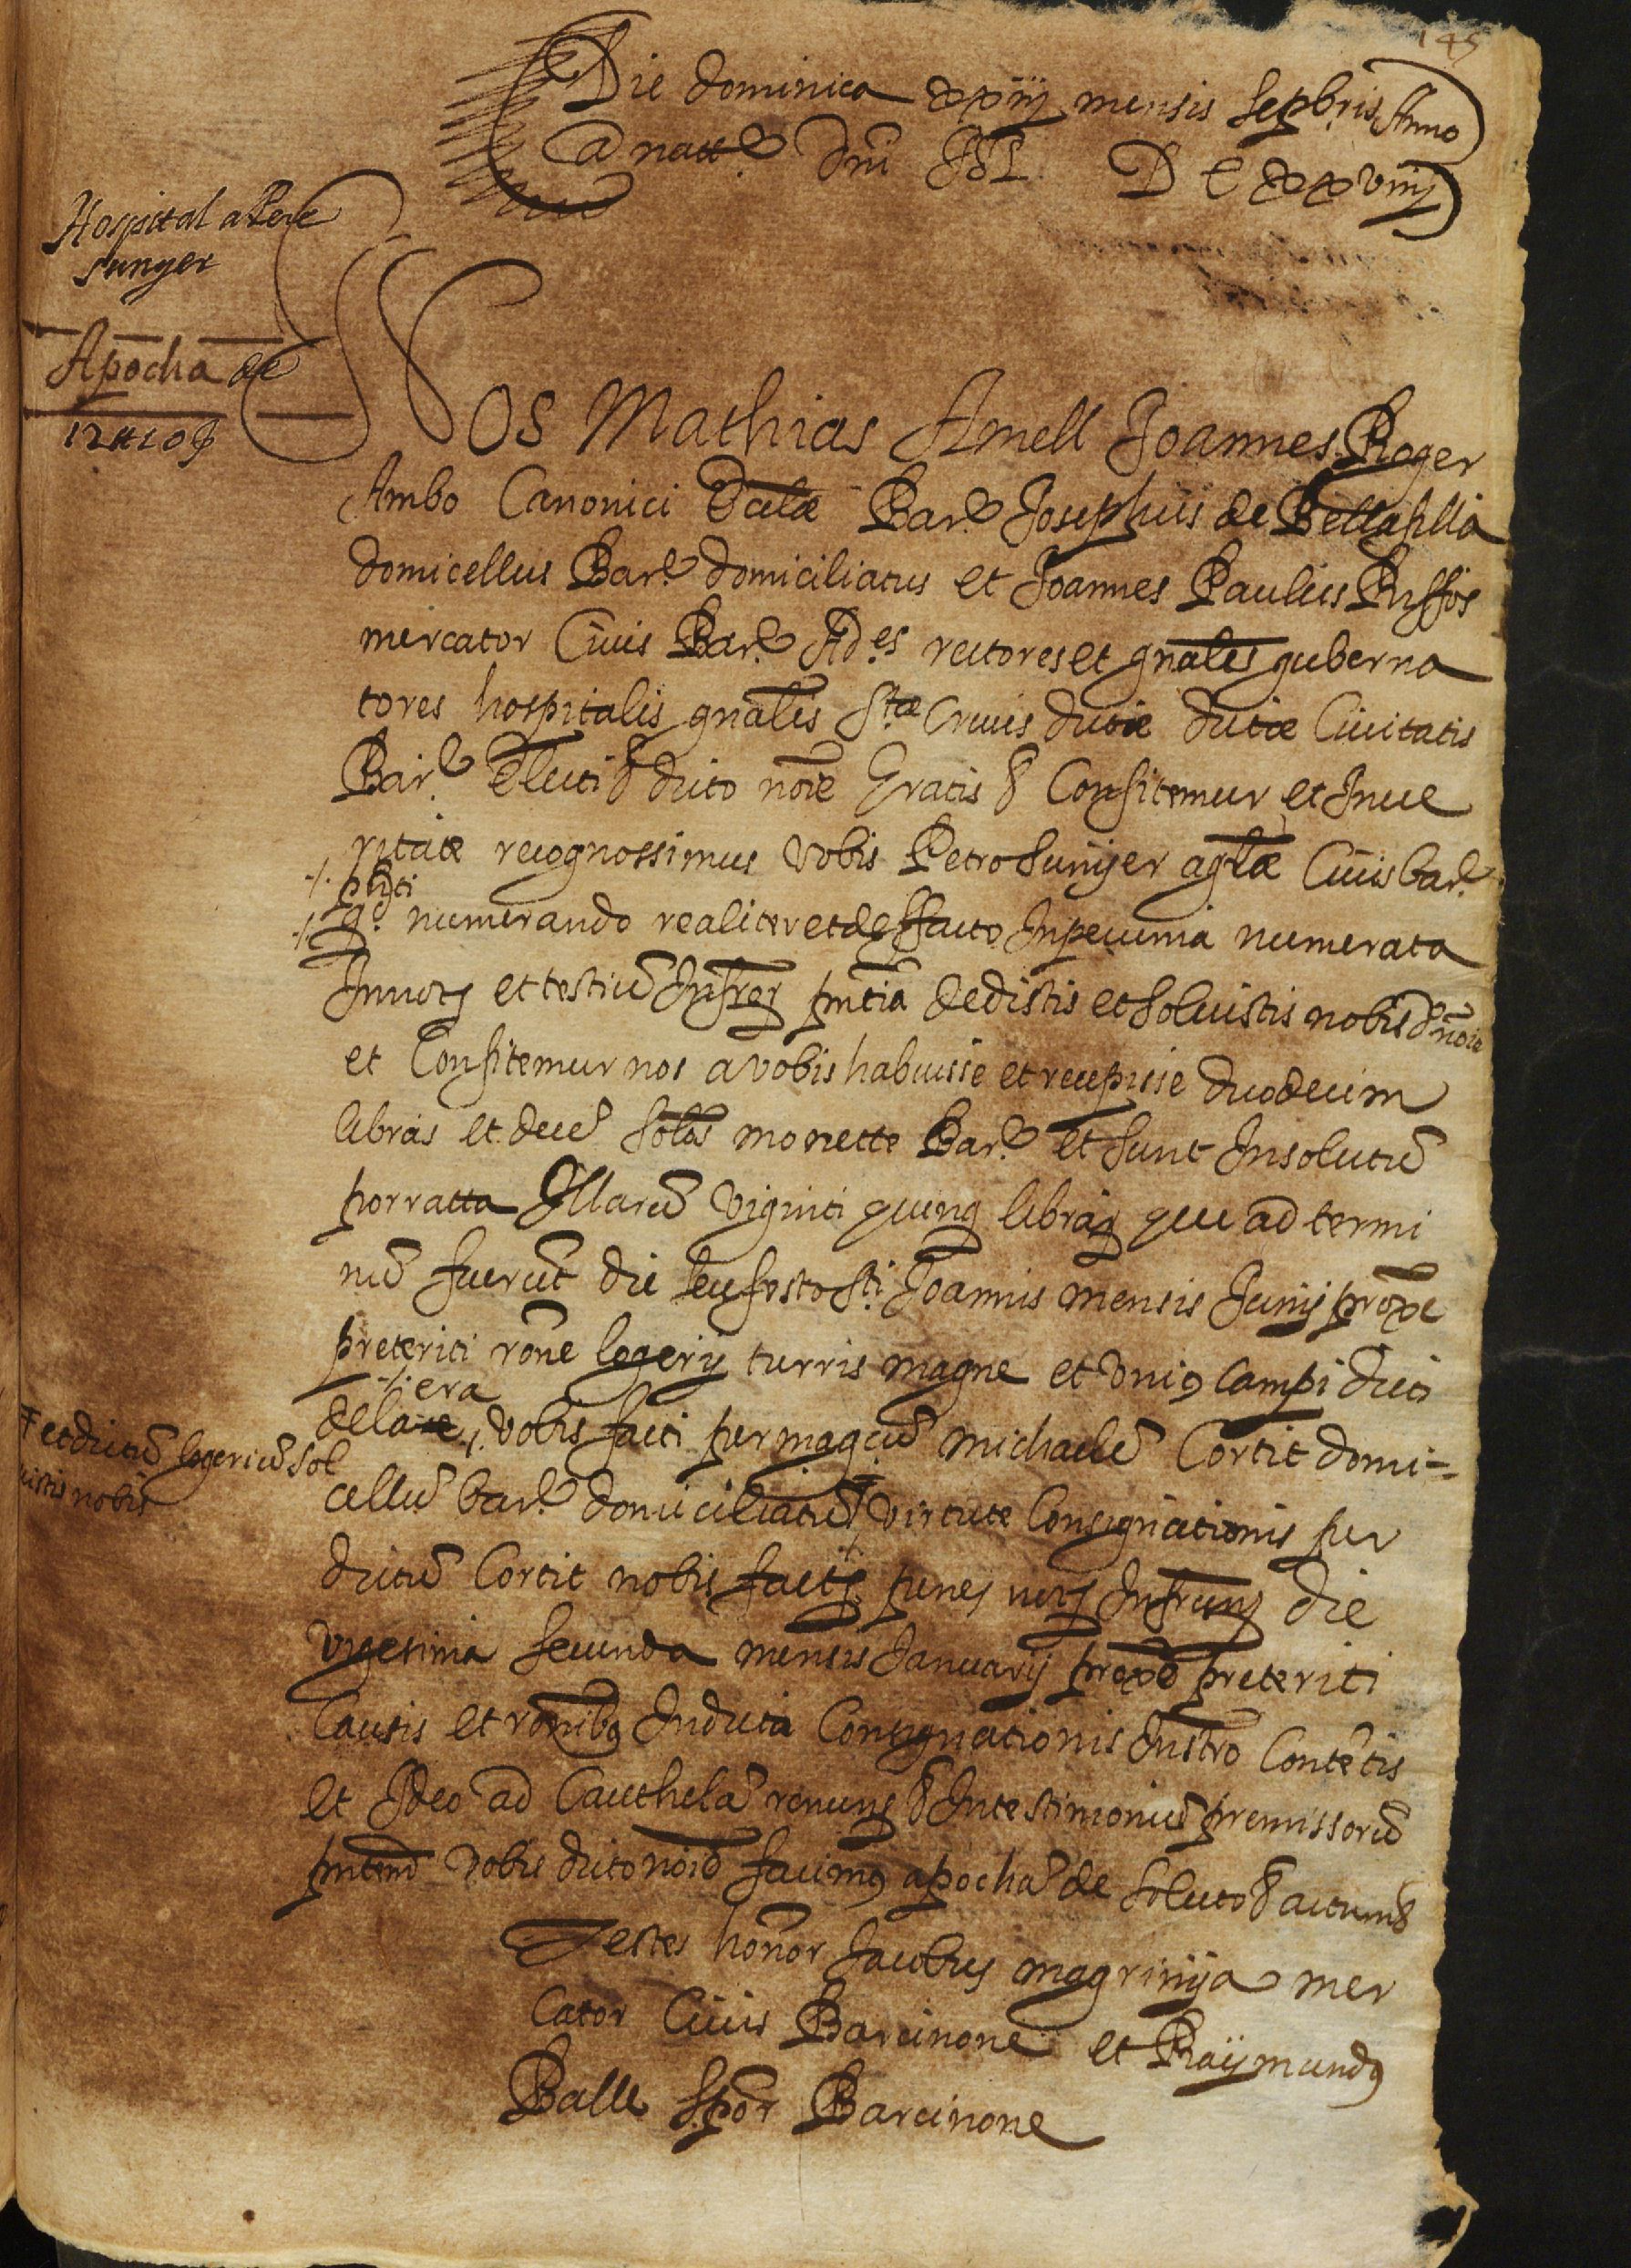 145
Die dominica xxiij mensis Sepbris Anno
A nat.e Dni M DCxxviiij
Hospital a Pere
Sunyer
Apocha de
12 ℔ 10 ẜ
Nos Mathias Amell Joannes Roger
Ambo Canonici Eccłæ Bar.e Josephus de Bellafilla
domicellus Bar.e domiciliatus et Joannes Paulus Ruffos
mercator Ciuis Bar.e Ad.es rectores et gnales guberna
tores hospitalis gnalis S.tæ Crucis dictæ Ciuitatis
Bar.e Electi & dicto noie Gratis & Confitemur et Inue
ritate recognossimus vobis Petro Sunyer agłæ Ciuis bar.e
pñti
q.d numerando realiter et de ffacto Inpecunia numerata
In notÿ et testiũ Infror pñtia dedistis et soluistis nobis d. noie
et Confitemur nos a vobis habuisse et recepisse duodecim
libras et decẽ solõs monette Bar.e et sunt Insolutũ
porratta Illarũ viginti quinq librar que ad termi
nũ fuerũt die seu festo S.ti Joannis mensis Junij prope
preteriti rõne logerij turris magne et vniq Campi dicti
era
dela vobis facti per magcũ michaelẽ Cortit domi=
cellũ bar.e domiciliatũ virtute Consignationis per
Ŧ et dictũ logeriũ sol
uistis nobis
dictũ Cortit nobis facte penes notÿ Infrum die
vigesima secunda mensis Januarij proxe preteriti
Causis et rõnibq Indicta Consignationis Instro Contẽtis
et Ideo ad Cauthelã renuns & Intestimoniũ premissorũ
pntem vobis dicto noie facimq apochã de soluto & actum &
Testes honor Jacobus magrinya mer
cator Ciuis Barcinone et Raÿmundq
Balle Spor Barcinone